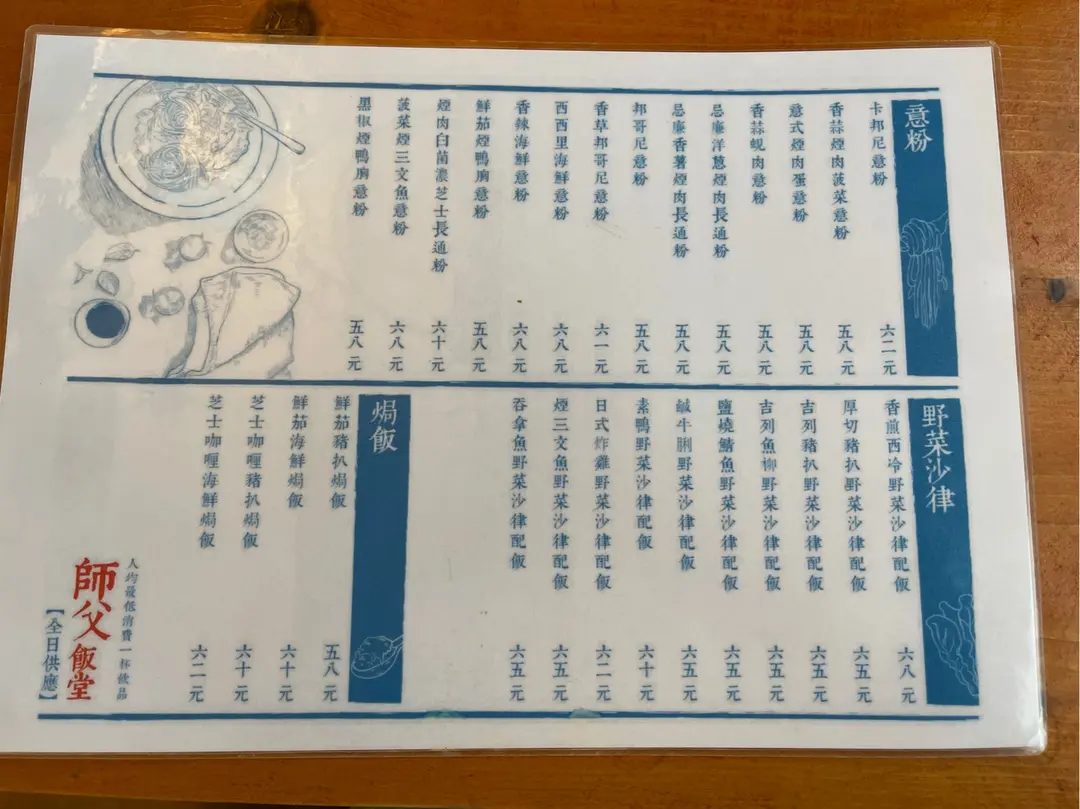 意粉
卡邦尼意粉 六二元
香蒜煙肉菠菜意粉 五八元
意式煙肉蛋意粉 五八元
香蒜蜆肉意粉 五八元
忌廉洋蔥煙肉長通粉 五八元
忌廉香薯煙肉長通粉 五八元
邦哥尼意粉 五八元
香草邦哥尼意粉 六一元
西西里海鮮意粉 六八元
香辣海鮮意粉 六八元
鮮茄煙鴨胸意粉 五八元
煙肉白菌濃芝士長通粉 六十元
菠菜煙三文魚意粉 六八元
黑椒煙鴨胸意粉 五八元
野菜沙律
香煎西冷野菜沙律配飯 六八元
厚切豬扒野菜沙律配飯 六五元
吉列豬扒野菜沙律配飯 六五元
吉列魚柳野菜沙律配飯 六五元
鹽燒鯖魚野菜沙律配飯 六五元
鹹牛脷野菜沙律配飯 六五元
素鴨野菜沙律配飯 六十元
日式炸雞野菜沙律配飯 六二元
煙三文魚野菜沙律配飯 六五元
吞拿魚野菜沙律配飯 六五元
焗飯
鮮茄豬扒焗飯 五八元
鮮茄海鮮焗飯 六十元
芝士咖喱豬扒焗飯 六十元
芝士咖喱海鮮焗飯 六二元
人均最低消費一杯飲品
師父飯堂
【全日供應】